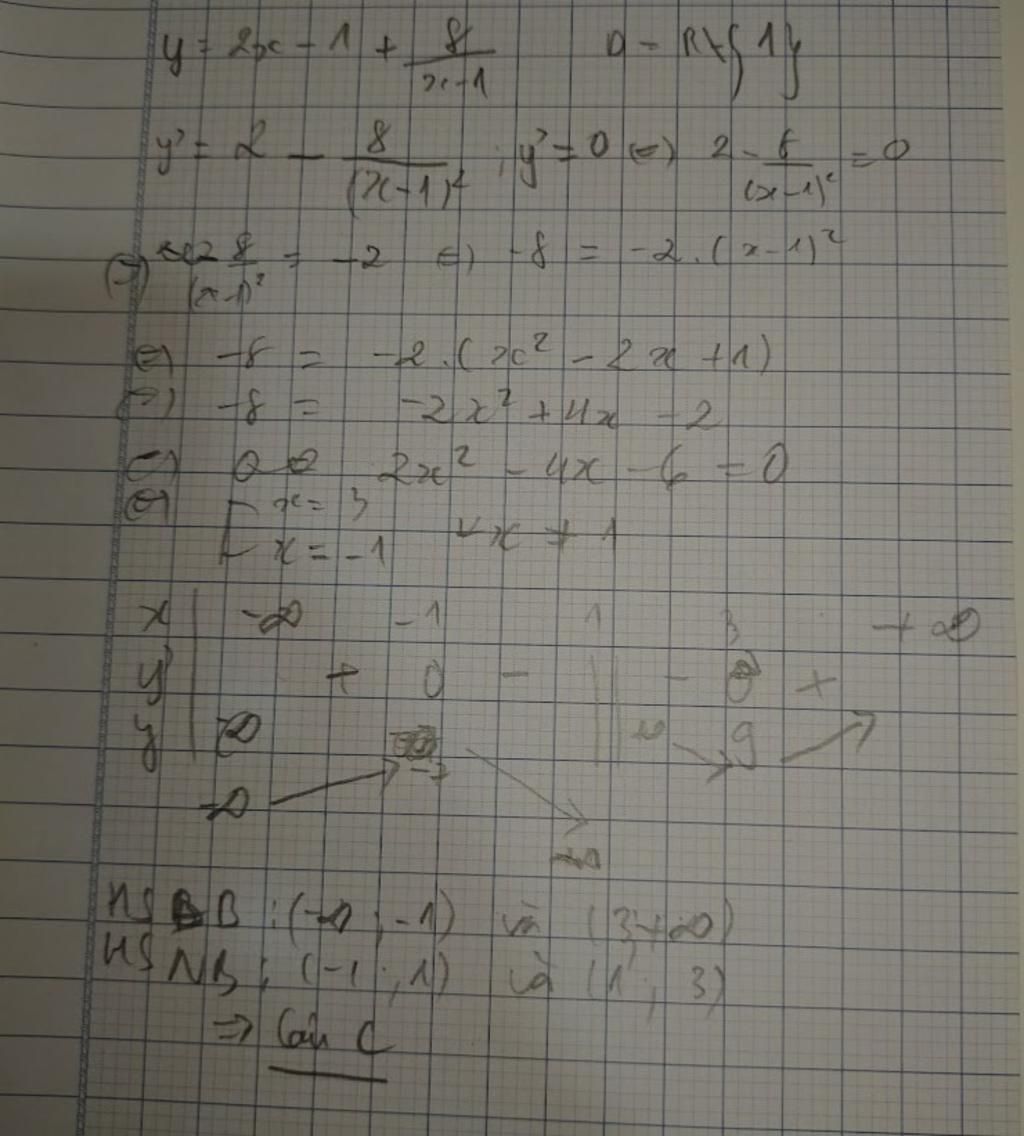 y = 2x - 1 + 8/(x-1) D = R\{1}
y' = 2 - 8/(x-1)² ; y' = 0 (=) 2 - 8/(x-1)² = 0
(=) 8/(x-1)² = -2 (=) -8 = -2.(x-1)²
(=) -8 = -2.(x² - 2x + 1)
(=) -8 = -2x² + 4x - 2
(=) 2x² - 4x - 6 = 0
(=) [ x = 3
[ x = -1 x ≠ 1
x | -∞ -1 1 3 +∞
y' | + 0 - || - 0 +
y | -∞ -7 || 9
HS ĐB : (-∞ ; -1) và (3; +∞)
HS NB : (-1 ; 1) và (1 ; 3)
=> Câu C